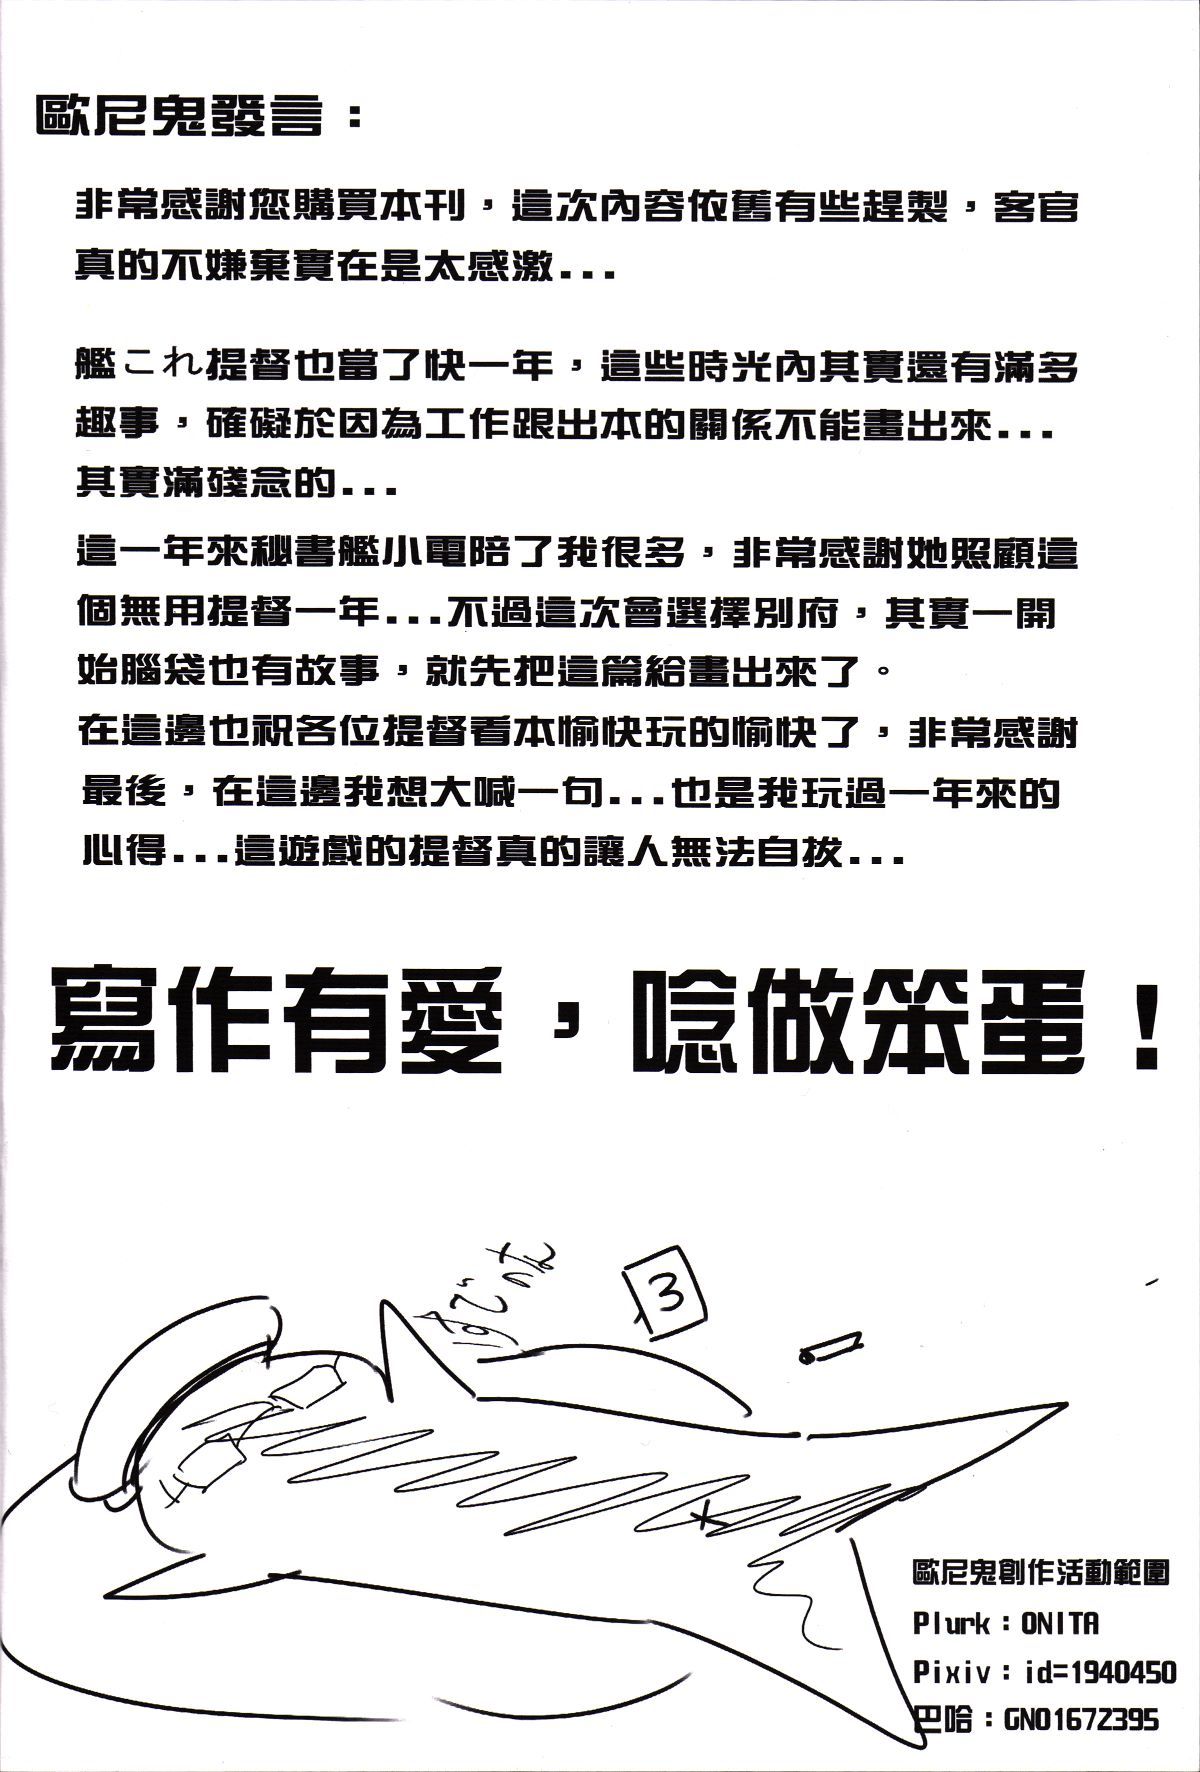 歐尼鬼發言：
非常感謝您購買本刊，這次內容依舊有些趕製，客官
真的不嫌棄實在是太感激...
艦これ提督也當了快一年，這些時光內其實還有滿多
趣事，確礙於因為工作跟出本的關係不能畫出來...
其實滿殘念的...
這一年來秘書艦小電陪了我很多，非常感謝她照顧這
個無用提督一年...不過這次會選擇別府，其實一開
始腦袋也有故事，就先把這篇給畫出來了。
在這邊也祝各位提督看本愉快玩的愉快了，非常感謝
最後，在這邊我想大喊一句...也是我玩過一年來的
心得...這遊戲的提督真的讓人無法自拔...
寫作有愛，唸做笨蛋！
3
歐尼鬼創作活動範圍
Plurk：ONITA
Pixiv：id=1940450
巴哈：GN01672395